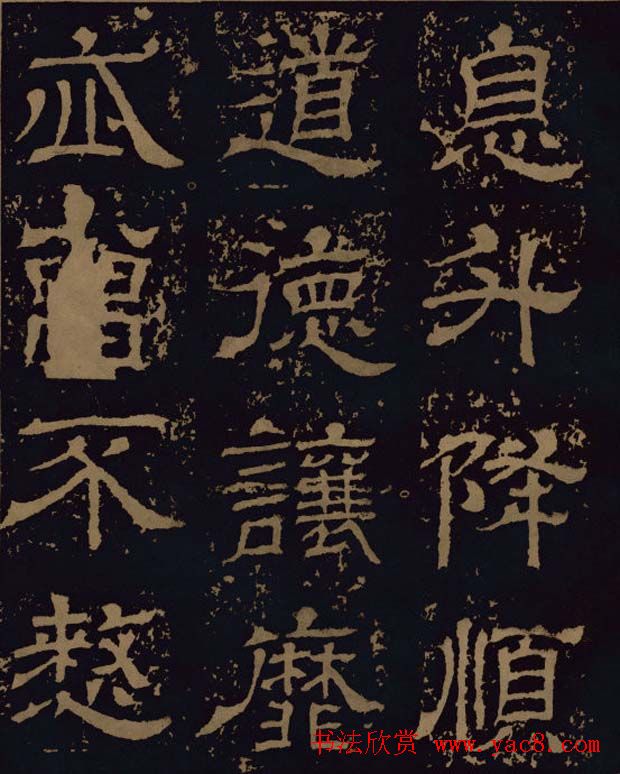 息升降順
道德讓靡
不憖
书法欣赏 www.yac8.com